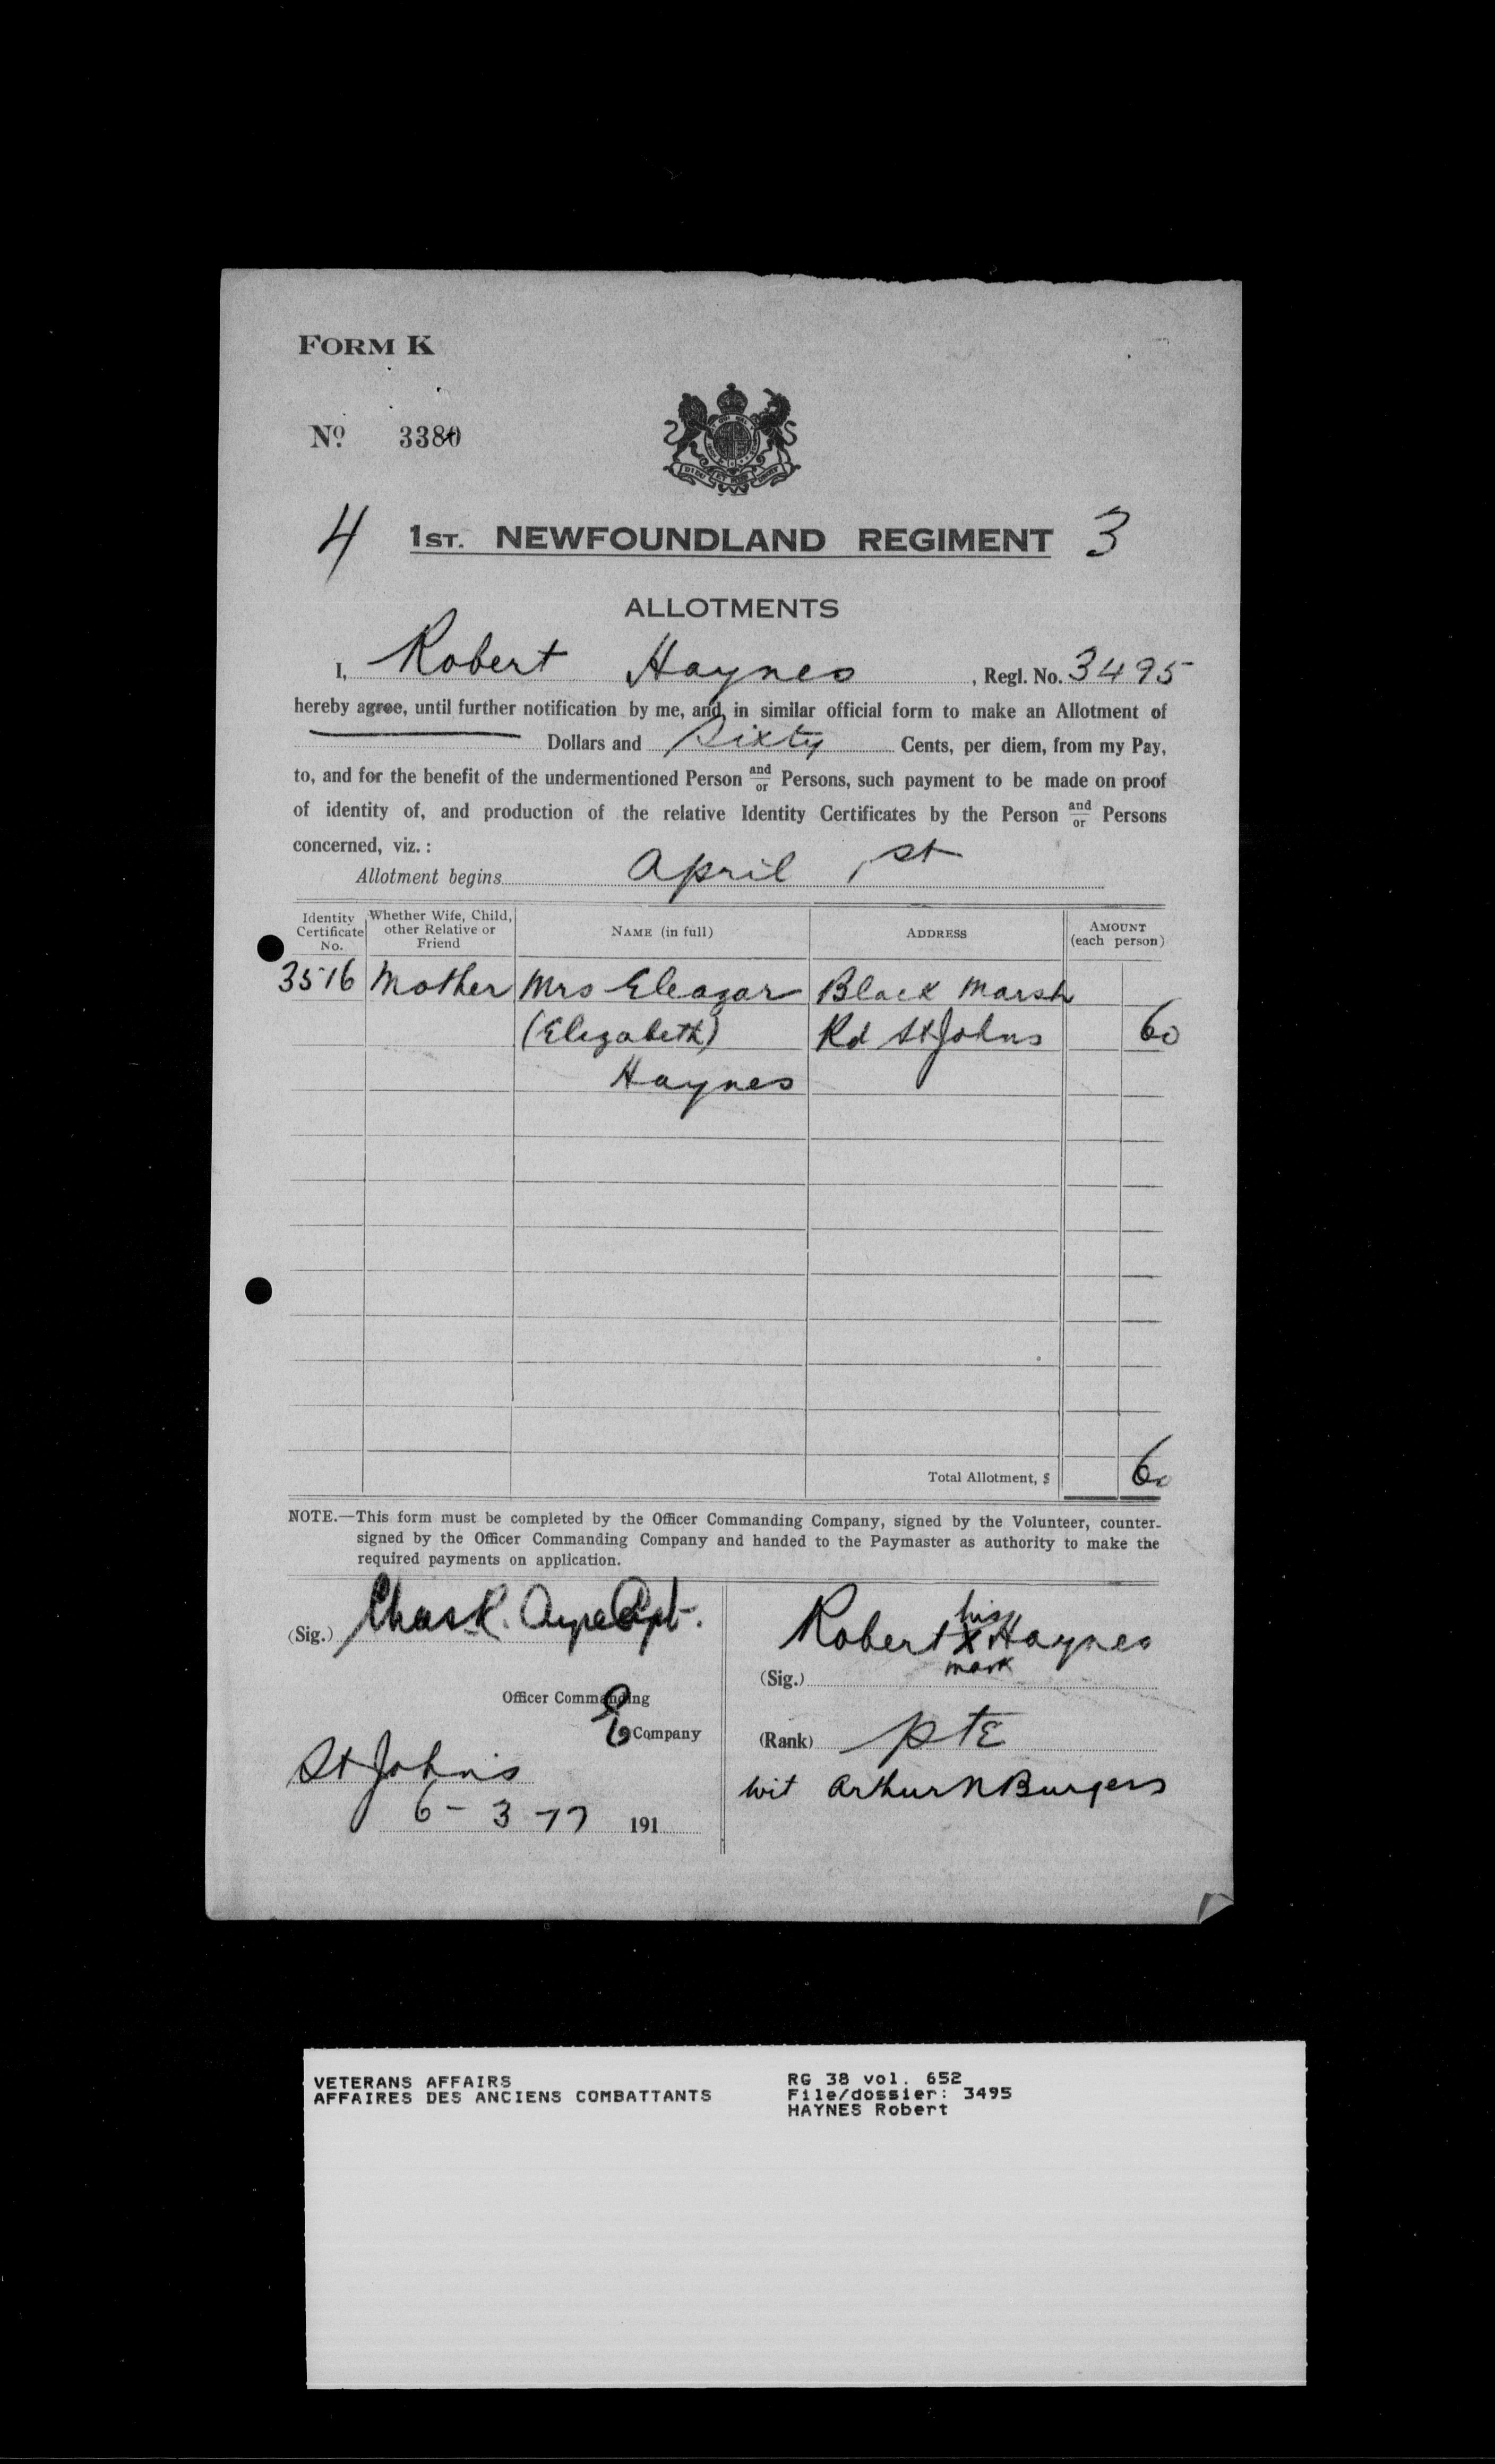 FORM K
Nº 3380
4 1ST. NEWFOUNDLAND REGIMENT 3
ALLOTMENTS
I, Robert Haynes, Regl. No. 3495
hereby agree, until further notification by me, and, in similar official form to make an Allotment of
Dollars and Sixty Cents, per diem, from my Pay,
to, and for the benefit of the undermentioned Person and/or Persons, such payment to be made on proof
of identity of, and production of the relative Identity Certificates by the Person and/or Persons
concerned, viz.:
Allotment begins April 1st
Identity Certificate No. Whether Wife, Child, other Relative or Friend NAME (in full) ADDRESS AMOUNT (each person)
3516 Mother Mrs Eleazar Black Marsh
(Elizabeth) Rd St Johns 60
Haynes
Total Allotment, $ 60
NOTE.—This form must be completed by the Officer Commanding Company, signed by the Volunteer, counter-
signed by the Officer Commanding Company and handed to the Paymaster as authority to make the
required payments on application.
(Sig.) Chas R. Ayre Capt.
Officer Commanding
E Company
St John's
6-3-17 191
his
Robert X Haynes
mark
(Sig.)
(Rank) Pte
Wit Arthur N Burgess
VETERANS AFFAIRS
AFFAIRES DES ANCIENS COMBATTANTS
RG 38 vol. 652
File/dossier: 3495
HAYNES Robert